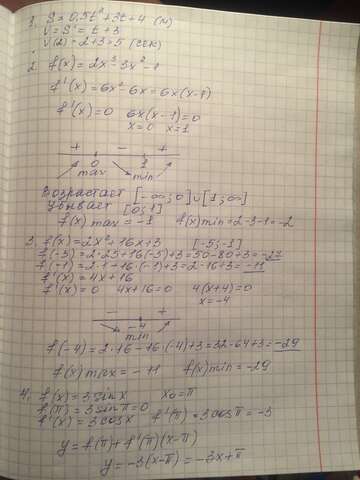 1. S = 0,5t² + 3t + 4 (м)
V = S' = t + 3
V(2) = 2 + 3 = 5 (сек)
2. f(x) = 2x³ - 3x² - 1
f'(x) = 6x² - 6x = 6x(x-1)
f'(x) = 0 6x(x-1) = 0
x = 0 x = 1
+ - +
0 1
max min
Возрастает [-∞; 0] ∪ [1; ∞)
Убывает [0; 1]
f(x) max = -1 f(x) min = 2-3-1 = -2
3. f(x) = 2x² + 16x + 3 [-5; -1]
f(-5) = 2·25 + 16(-5) + 3 = 50 - 80 + 3 = -27
f(-1) = 2·1 + 16·(-1) + 3 = 2 - 16 + 3 = -11
f'(x) = 4x + 16
f'(x) = 0 4x + 16 = 0 4(x+4) = 0
x = -4
- +
-4
min
f(-4) = 2·16 - 16·(-4) + 3 = 32 - 64 + 3 = -29
f(x) max = -11 f(x) min = -29
4. f(x) = 3 sin x x₀ = π
f(π) = 3 sin π = 0
f'(x) = 3 cos x f'(π) = 3 cos π = -3
y = f(π) + f'(π)(x-π)
y = -3(x-π) = -3x + π